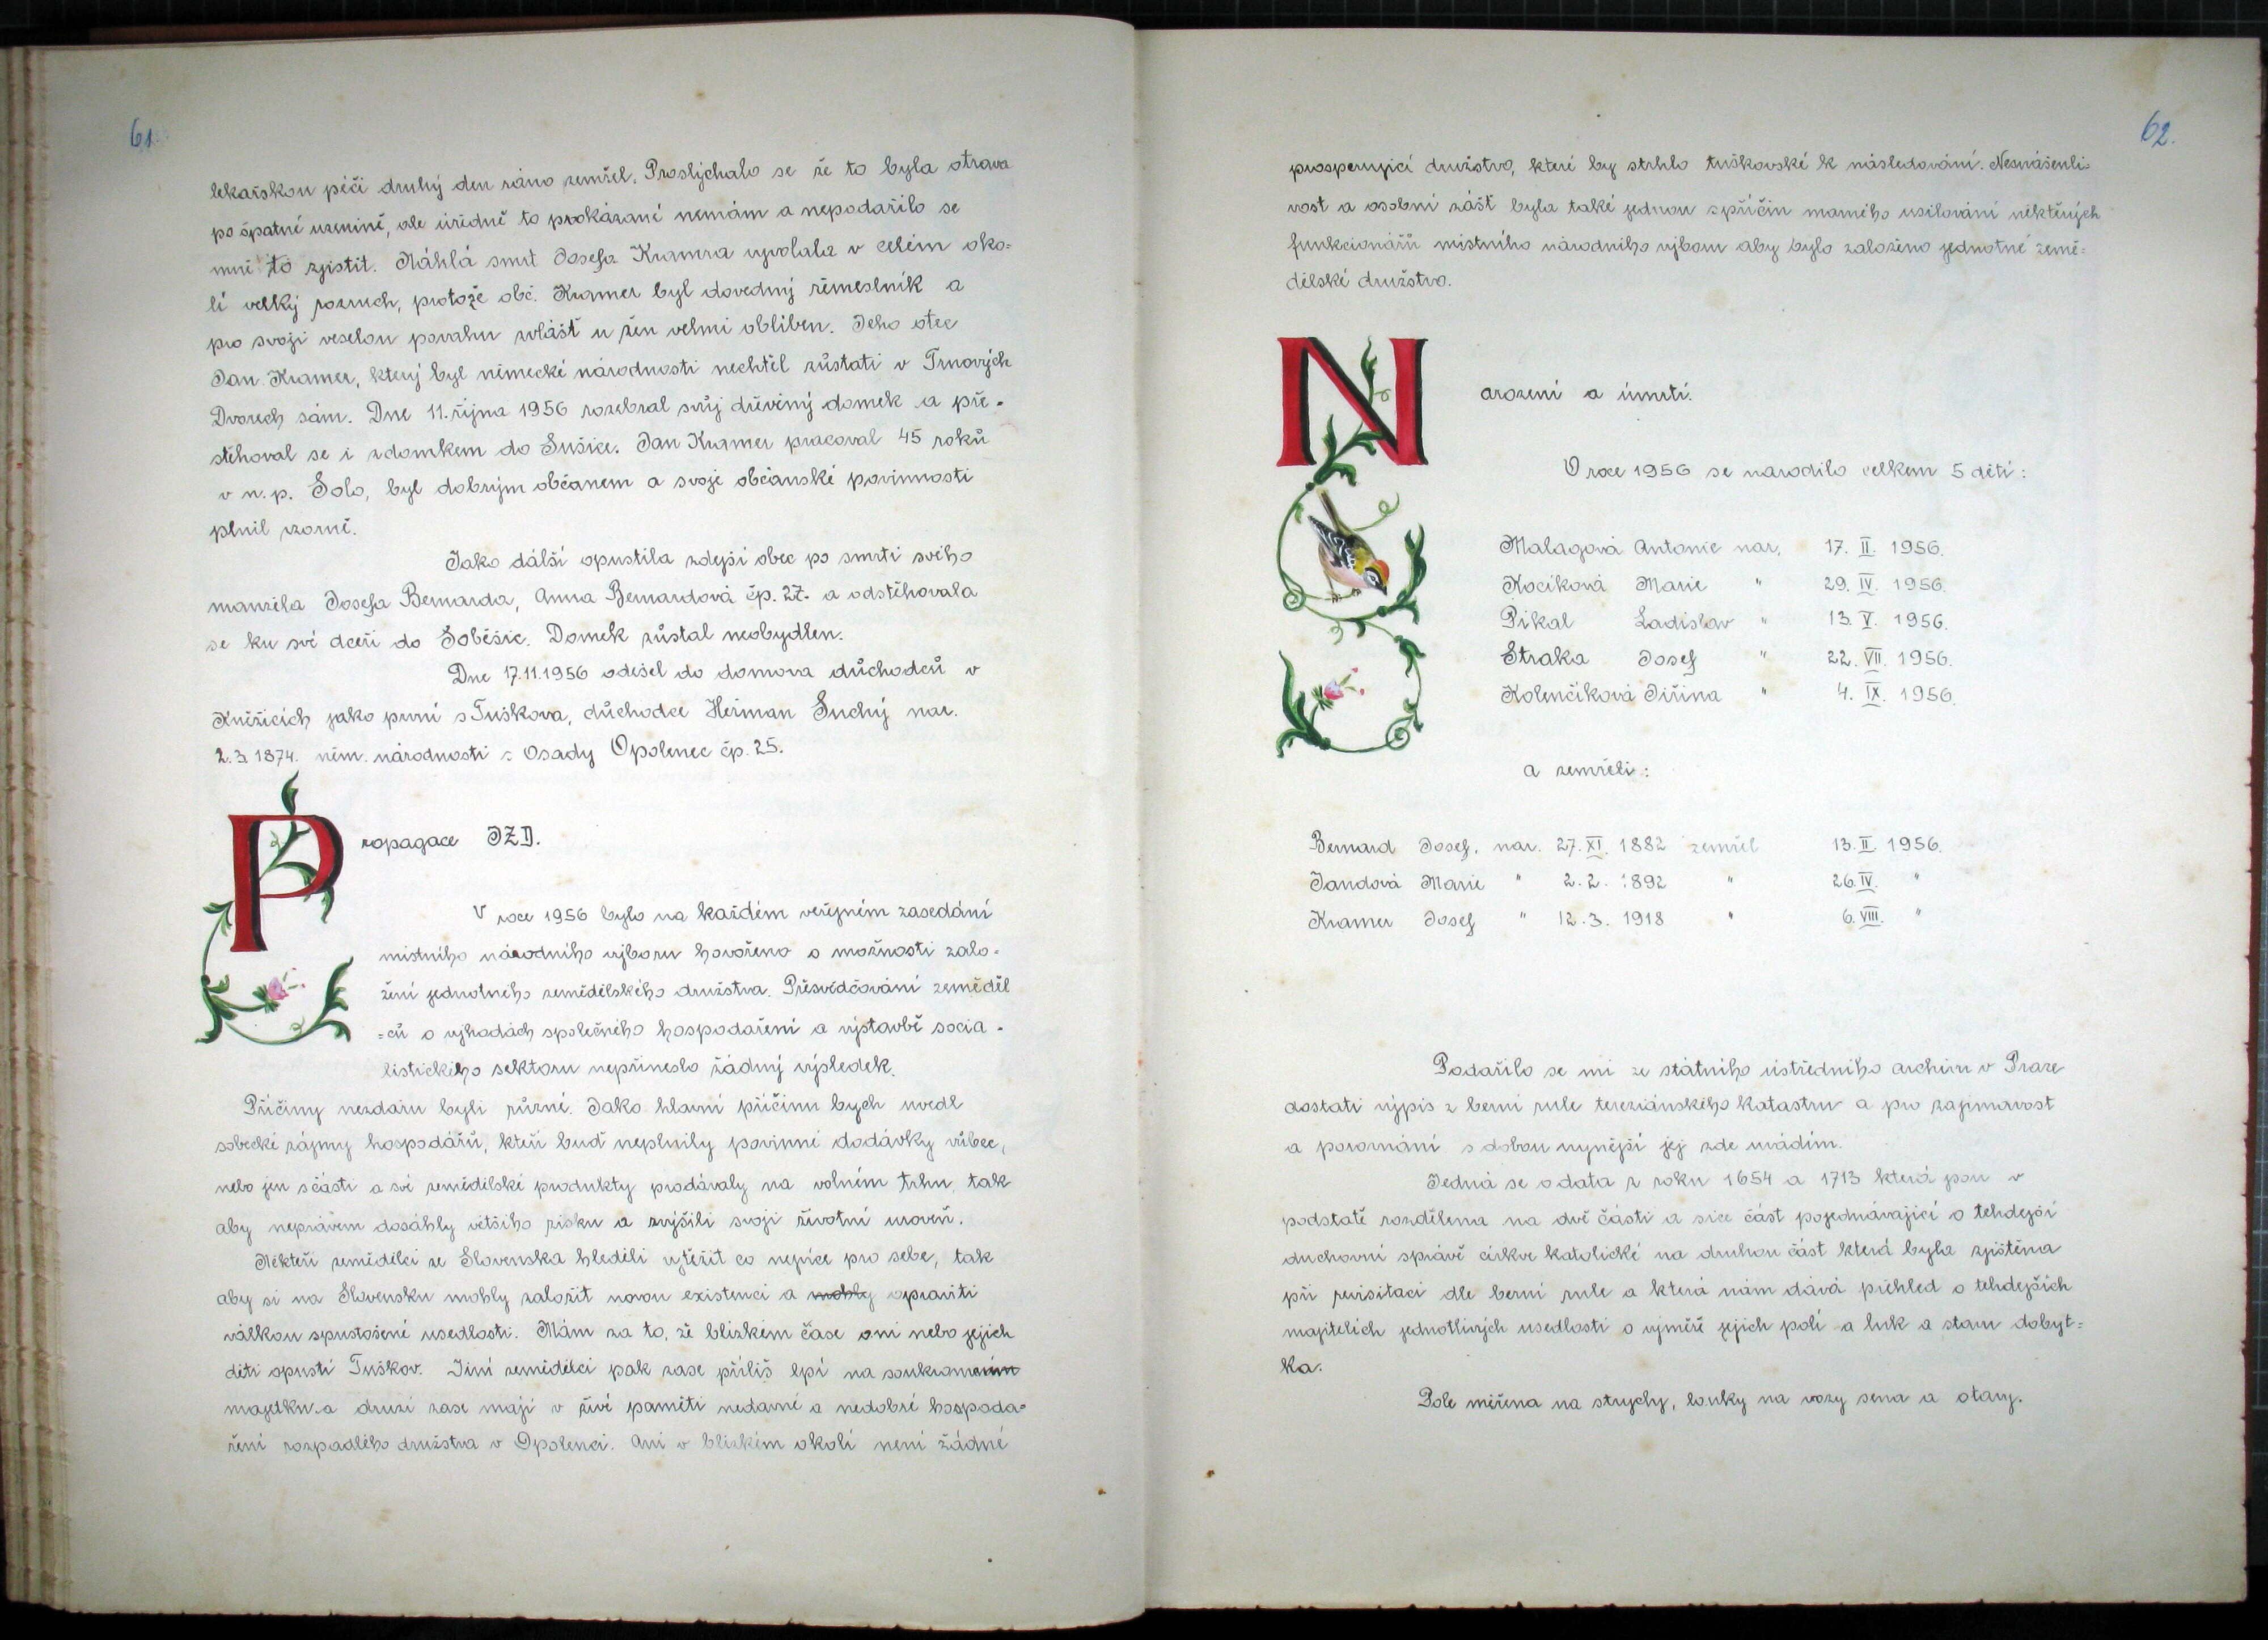 61.
lékařskou péčí druhý den ráno zemřel. Proslýchalo se že to byla otrava
po špatné uzenině, ale úředně to prokázané nemám a nepodařilo se
mně to zjistit. Náhlá smrt Josefa Kramra vyvolala v celém oko=
lí velký rozruch, protože obč. Kramer byl dovedný řemeslník a
pro svoji veselou povahu zvlášť u žen velmi oblíben. Jeho otec
Jan Kramer, který byl německé národnosti nechtěl zůstati v Trnových
Dvorech sám. Dne 11. října 1956 rozebral svůj dřevěný domek a pře-
stěhoval se i zdomkem do Sušice. Jan Kramer pracoval 45 roků
v n.p. Solo, byl dobrým občanem a svoje občanské povinnosti
plnil vzorně.
Jako další opustila zdejší obec po smrti svého
manžela Josefa Bernarda, Anna Bernardová čp. 27. a odstěhovala
se ku své dceři do Soběšic. Domek zůstal neobydlen.
Dne 17.11.1956 odešel do domova důchodců v
Kněžicích jako první s Tuškova, důchodce Heřman Suchý nar.
2.3.1874. něm. národnosti s Osady Opolenec čp. 25.
Propagace JZD.
V roce 1956 bylo na každém veřejném zasedání
místního národního výboru hovořeno o možnosti zalo-
žení jednotného zemědělského družstva. Přesvědčování zeměděl
=ců o výhodách společného hospodaření a výstavbě socia-
listického sektoru nepřineslo žádný výsledek.
Příčiny nezdaru byli různé. Jako hlavní příčinu bych uvedl
sobecké zájmy hospodářů, kteří buď neplnily povinné dodávky vůbec,
nebo jen sčásti a své zemědělské produkty prodávaly na volném trhu, tak
aby neprávem dosáhly většího zisku a zvýšili svoji životní uroveň.
Někteří zemědělci ze Slovenska hleděli vytěžit co nejvíce pro sebe, tak
aby si na Slovensku mohly založit novou existenci a mohly opraviti
válkou spustošené usedlosti. Mám za to, že blízkém čase oni nebo jejich
děti opustí Tuškov. Jiní zemědělci pak zase příliš lpí na soukromém
majetku a druzí zase mají v živé paměti nedávné a nedobré hospoda=
ření rozpadlého družstva v Opolenci. Ani v blízkém okolí není žádné
62.
prosperující družstvo, které by strhlo tuškovské k následování. Nesnášenli=
vost a osobní zášť byla také jednou spříčin marného usilování některých
funkcionářů místního národního výboru aby bylo založeno jednotné země=
dělské družstvo.
Narození a úmrtí.
V roce 1956 se narodilo celkem 5 dětí:
Malagová Antonie nar, 17. II. 1956.
Kocíková Marie " 29. IV. 1956.
Pikal Ladislav " 13. V. 1956.
Straka Josef " 22. VII. 1956.
Kolenčíková Jiřina " 4. IX. 1956.
a zemřeli:
Bernard Josef, nar. 27. XI. 1882 zemřel 13. II. 1956.
Jandová Marie " 2. 2. 1892 " 26. IV. "
Kramer Josef " 12. 3. 1918 " 6. VIII. "
Podařilo se mi ze státního ústředního archivu v Praze
dostati výpis z berní rule tereziánského katastru a pro zajímavost
a porovnání s dobou nynější jej zde uvádím.
Jedná se o data z roku 1654 a 1713 která jsou v
podstatě rozdělena na dvě části a sice část pojednávající o tehdejší
duchovní správě církve katolické na druhou část která byla zjištěna
při revisitaci dle berní rule a která nám dává přehled o tehdejších
majitelích jednotlivých usedlostí o výměře jejich polí a luk a stavu dobyt=
ka.
Pole měřena na strychy, louky na vozy sena a otavy.